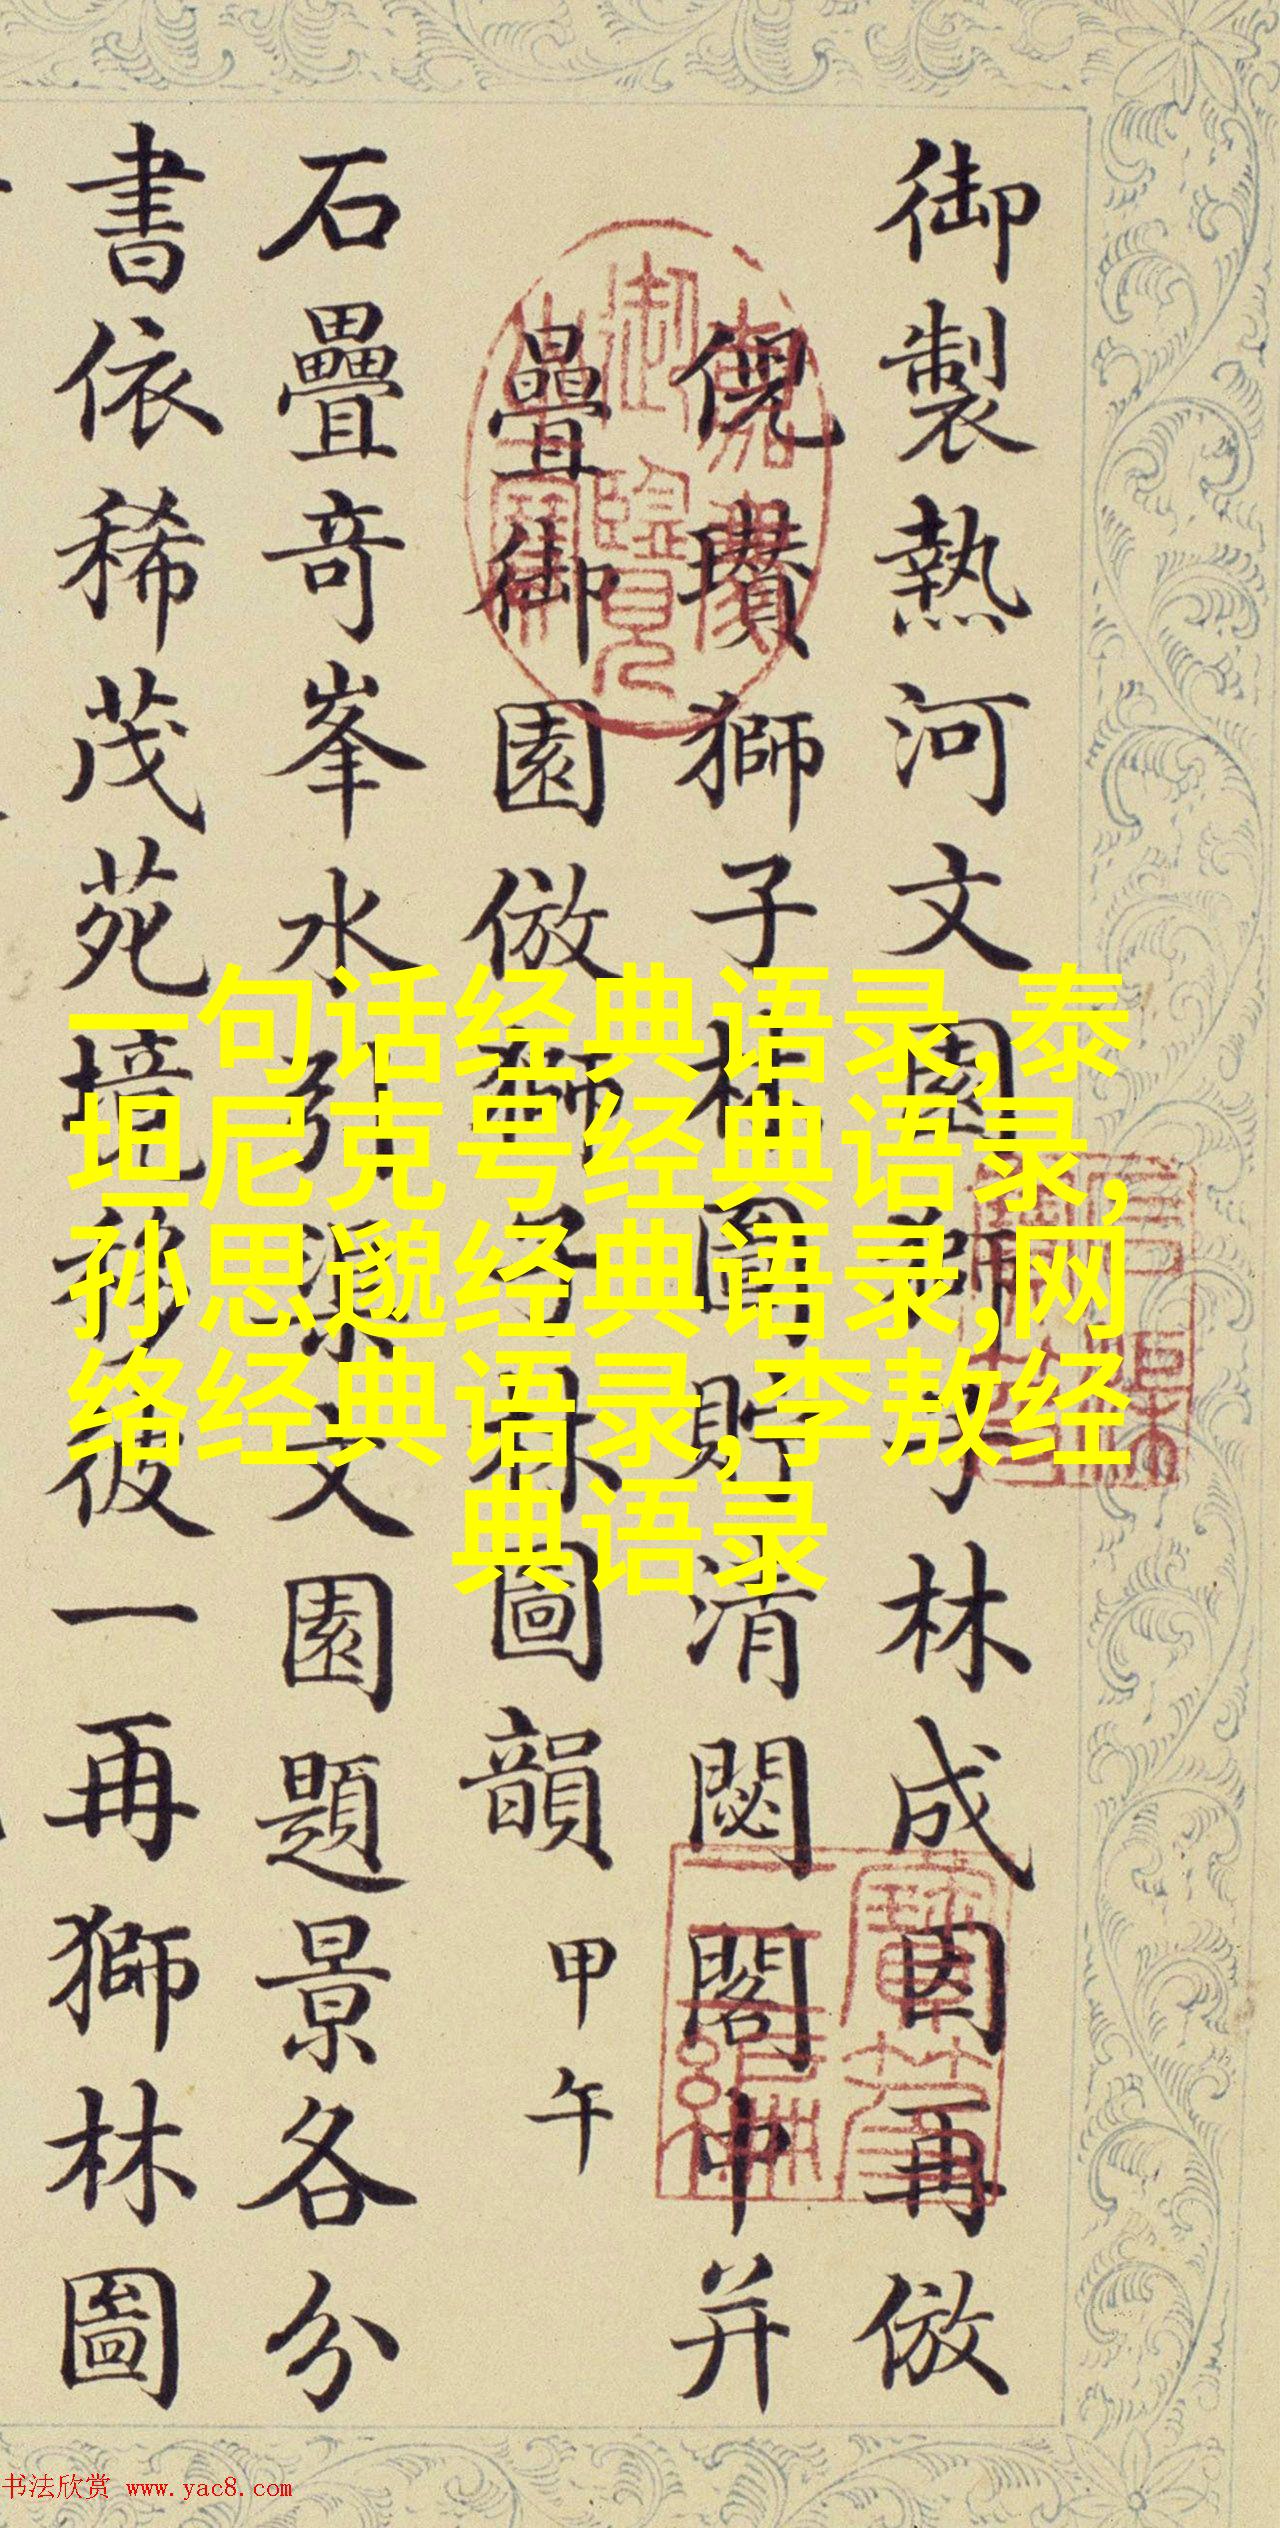 御製熱河文園獅子林成因再倣
倪瓚獅子林圖貯清閟閣中并
疊御園倣獅子林圖韻 甲午
石疊竒峯水引溪文園題景各分
書依稀茂苑境移彼一再獅林圖
一句话经典语录,泰
坦尼克号经典语录,
孙思邈经典语录,网
络经典语录,李敖经
典语录
书法欣赏 www.yac8.com